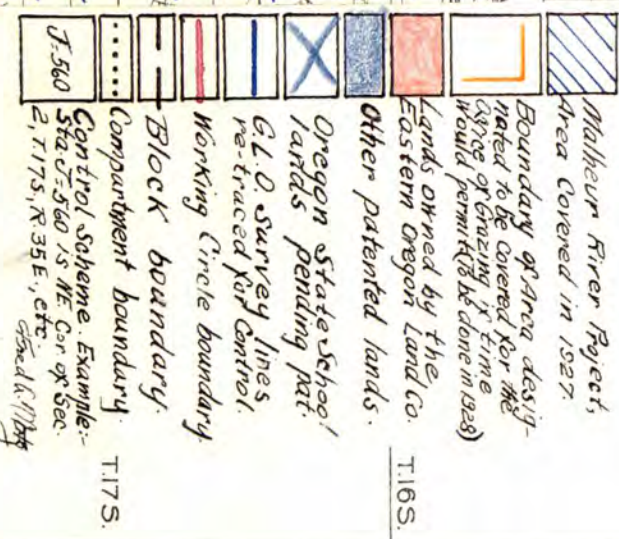 Malheur River Project,
Area Covered in 1927.
Boundary of Area desig-
nated to be covered for the
office of Grazing if time
would permit (to be done in 1928)
Lands owned by the
Eastern Oregon Land Co.
Other patented lands.
Oregon State School
lands pending pat.
G.L.O. Survey lines
re-traced for Control.
Working Circle boundary
Block boundary.
Compartment boundary.
J-560
Control Scheme. Example:-
Sta. J-560 is NE Cor. of Sec.
2, T.17S., R.35E., etc
T.16S.
T.17S.